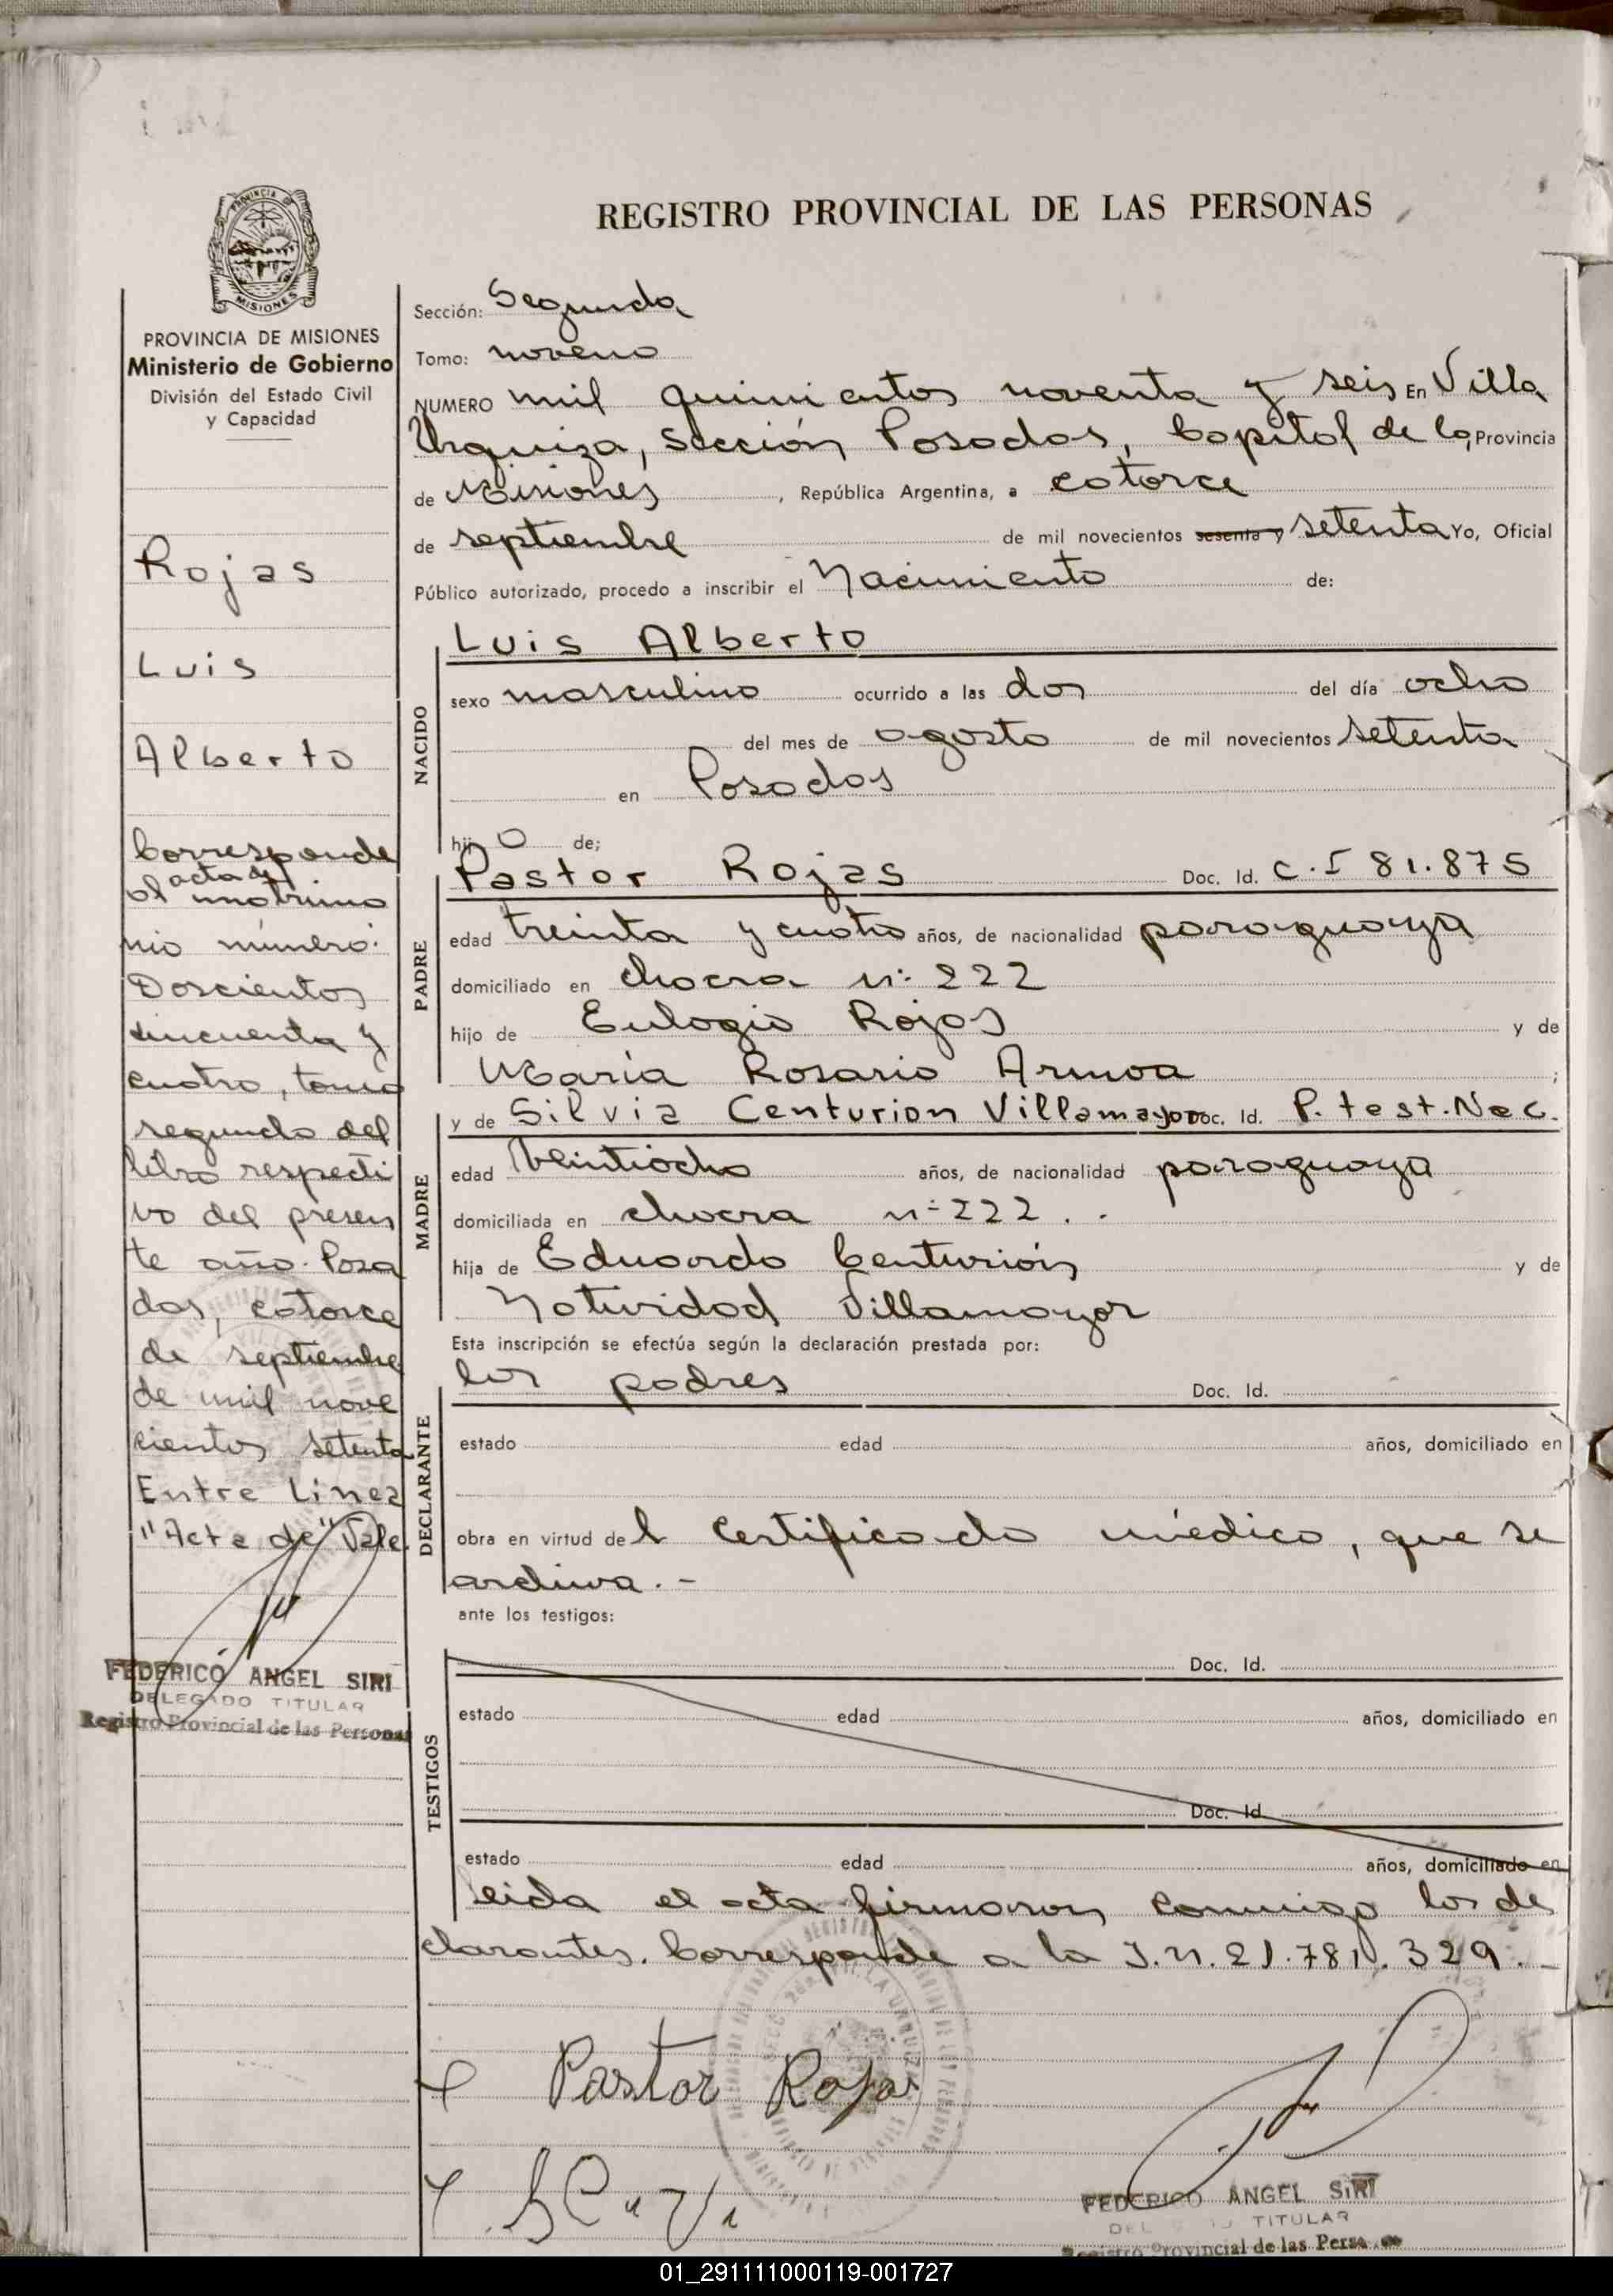 REGISTRO PROVINCIAL DE LAS PERSONAS
PROVINCIA
MISIONES
PROVINCIA DE MISIONES
Ministerio de Gobierno
División del Estado Civil
y Capacidad
Rojas
Luis
Alberto
Corresponde
acta de
al matrimo
nio número:
Doscientos
cincuenta y
cuatro, tomo
segundo del
libro respecti
vo del presen
te año. Posa
das, catorce
de septiembre
de mil nove
cientos setenta
Entre Linea
"Acta de" Vale.
FEDERICO ANGEL SIRI
DELEGADO TITULAR
Registro Provincial de las Personas
Sección: Segunda
Tomo: noveno
NUMERO mil quinientos noventa y seis En Villa
Urquiza, Sección Posadas, Capital de la, Provincia
de Misiones, República Argentina, a catorce
de septiembre de mil novecientos sesenta y setenta Yo, Oficial
Público autorizado, procedo a inscribir el Nacimiento de:
NACIDO
Luis Alberto
sexo masculino ocurrido a las dos del día ocho
del mes de agosto de mil novecientos setenta
en Posadas
hijo de;
PADRE
Pastor Rojas Doc. Id. C.I 81.875
edad treinta y cuatro años, de nacionalidad paraguaya
domiciliado en chacra n: 222
hijo de Eulogio Rojas y de
María Rosario Armoa ;
MADRE
y de Silvia Centurion Villamayor Doc. Id. P. test. Nac.
edad veintiocho años, de nacionalidad paraguaya
domiciliada en chacra n: 222 . .
hija de Eduardo Centurión y de
Natividad Villamayor
Esta inscripción se efectúa según la declaración prestada por:
DECLARANTE
los padres Doc. Id.
estado edad años, domiciliado en
obra en virtud del certificado médico, que se
archiva. -
ante los testigos:
TESTIGOS
Doc. Id.
estado edad años, domiciliado en
Doc. Id.
estado edad años, domiciliado en
leida el acta firmaron conmigo los de
clarantes. Corresponde a la I.N. 21.781.329. -
Pastor Rojas
FEDERICO ANGEL SIRI
TITULAR
Registro Provincial de las Perso
01_291111000119-001727